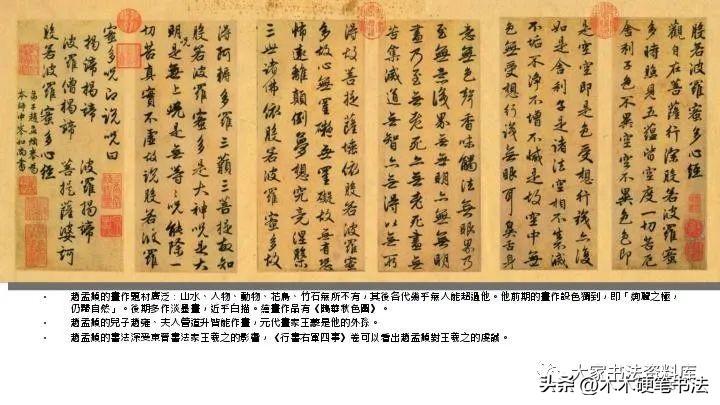 般若波羅蜜多心經
觀自在菩薩行深般若波羅蜜
多時照見五蘊皆空度一切苦厄
舍利子色不異空空不異色色即
是空空即是色受想行識亦復
如是舍利子是諸法空相不生不滅
不垢不淨不增不減是故空中無
色無受想行識無眼耳鼻舌身
意無色聲香味觸法無眼界乃
至無意識界無無明亦無無明
盡乃至無老死亦無老死盡無
苦集滅道無智亦無得以無所
得故菩提薩埵依般若波羅蜜
多故心無罣礙無罣礙故無有恐
怖遠離顛倒夢想究竟涅槃
三世諸佛依般若波羅蜜多故
得阿耨多羅三藐三菩提故知
般若波羅蜜多是大神咒是大
明咒是無上咒是無等等咒能除一
切苦真實不虛故說般若波羅
蜜多咒即說咒曰
揭諦揭諦 波羅揭諦
波羅僧揭諦 菩提薩婆訶
般若波羅蜜多心經
弟子趙孟頫奉為
本師中峯和尚書
• 趙孟頫的畫作題材廣泛：山水、人物、動物、花鳥、竹石無所不有，其後各代幾乎無人能超過他。他前期的畫作設色獨到，即「絢麗之極，
仍歸自然」。後期多作淡墨畫，近乎白描。著畫作品有《鵲華秋色圖》。
• 趙孟頫的兒子趙雍、夫人管道升皆能作畫，元代畫家王蒙是他的外孫。
• 趙孟頫的書法深受東晉書法家王羲之的影響，《行書右軍四事》卷可以看出趙孟頫對王羲之的虔誠。
大家书法资料库
头条 @木木硬笔书法